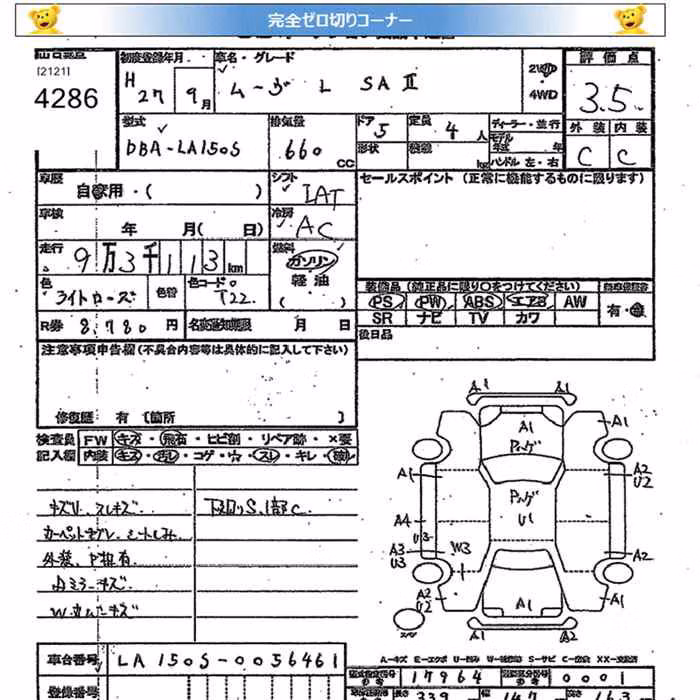 完全ゼロ切りコーナー
[2121]
4286
初度登録年月
H 27 9月
車名・グレード
ムーヴ L SAⅡ
2WD
・
4WD
評価点
3.5
外装 内装
C C
型式
DBA-LA150S
排気量
660 cc
ドア 5
定員 4人
形状
ディーラー・並行
モデル年式 年
ハンドル 左・右
kg
車歴
自家用・( )
シフト
IAT
セールスポイント (正常に機能するものに限ります)
車検
年 月( 日)
冷房
AC
走行
9万3千113km
燃料
ガソリン
軽油
( )
色
ライトローズ
色替
色コードNo
T22
装備品 (純正品に限り○をつけてください)
PS PW ABS エアB AW
SR ナビ TV カワ
有・無
R券 8,780円
名変期限 月 日
後日品
注意事項申告欄(不具合内容等は具体的に記入して下さい)
修復歴 有 〔箇所 〕
検査員 FW キズ・飛石・ヒビ割・リペア跡・×要
記入欄 内装 キズ・汚レ・コゲ・穴・スレ・キレ・破レ
キズU、スレキズ
下回りS、1部C
外装、P担有
Aミラーキズ
A1 A1
A1 A1
Pハゲ
A1
A2
U2
Pハゲ
U1
A4
U3
A3
U3
W3
A2
A2
U2
A1
A1
A1 A2
車台番号 LA150S-0056461
A-キズ E-エクボ U-凹み W-補修跡 S-サビ C-腐食 XX-交換済
登録番号
型式指定番号 17964
類別区分番号 0001
長さ 339
幅 147